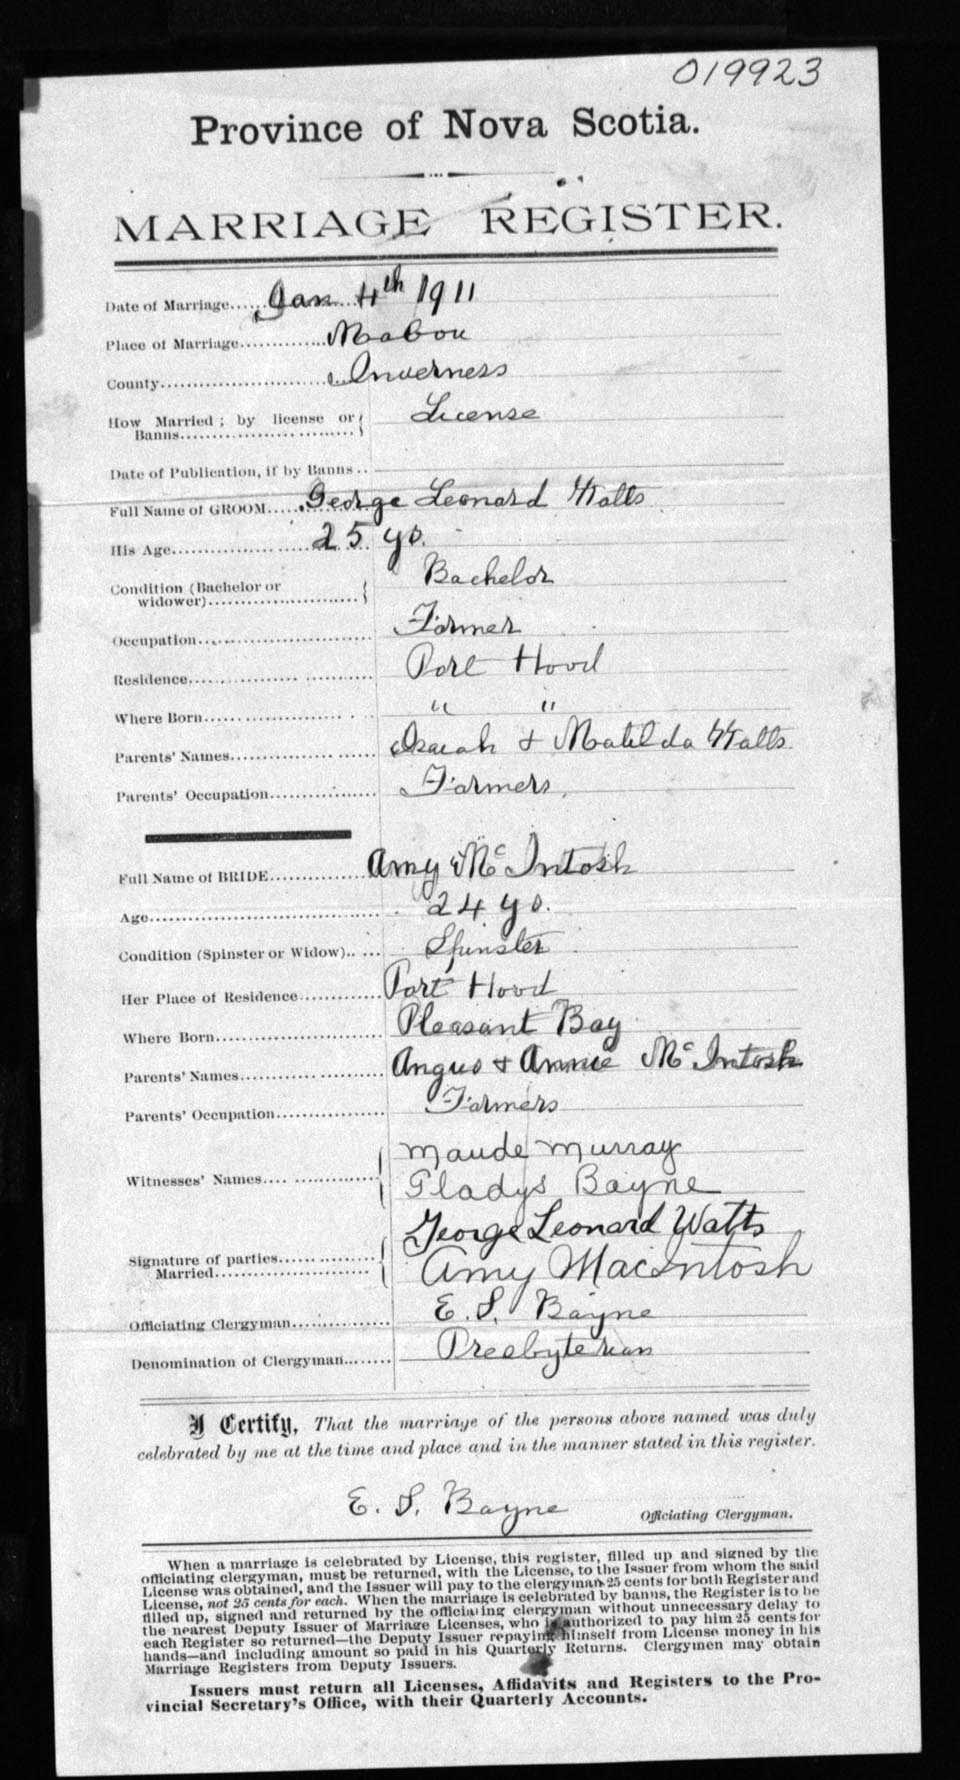 019923
Province of Nova Scotia.
MARRIAGE REGISTER.
Date of Marriage.....Jan 4th 1911
Place of Marriage............Mabou
County.......................Inverness
How Married ; by license or License
Banns..........................
Date of Publication, if by Banns ..
Full Name of GROOM.....George Leonard Watts
His Age.................... 25 yo.
Condition (Bachelor or Bachelor
widower).......................
Occupation........................... Farmer
Residence............................ Port Hood
Where Born......................... " "
Parents' Names..................... Isaiah & Matilda Watts
Parents' Occupation................ Farmers.
Full Name of BRIDE.............Amy McIntosh
Age.................................... 24 yo.
Condition (Spinster or Widow)..... Spinster
Her Place of Residence............Port Hood
Where Born....................... Pleasant Bay
Parents' Names..................... Angus & Annie McIntosh
Parents' Occupation................ Farmers
Maude Murray
Witnesses' Names....................
Gladys Bayne
George Leonard Watts
Signature of parties...............
Married........................ Amy MacIntosh
Officiating Clergyman.............. E. S. Bayne
Denomination of Clergyman........ Presbyterian
I Certify, That the marriage of the persons above named was duly
celebrated by me at the time and place and in the manner stated in this register.
E. S. Bayne Officiating Clergyman.
When a marriage is celebrated by License, this register, filled up and signed by the
officiating clergyman, must be returned, with the License, to the Issuer from whom the said
License was obtained, and the Issuer will pay to the clergyman 25 cents for both Register and
License, not 25 cents for each. When the marriage is celebrated by banns, the Register is to be
filled up, signed and returned by the officiating clergyman without unnecessary delay to
the nearest Deputy Issuer of Marriage Licenses, who is authorized to pay him 25 cents for
each Register so returned—the Deputy Issuer repaying himself from License money in his
hands—and including amount so paid in his Quarterly Returns. Clergymen may obtain
Marriage Registers from Deputy Issuers.
Issuers must return all Licenses, Affidavits and Registers to the Pro-
vincial Secretary's Office, with their Quarterly Accounts.